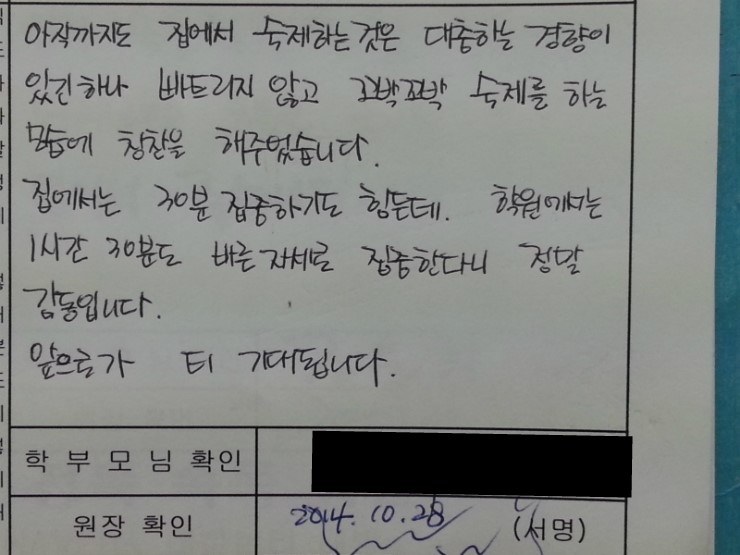 아직까지도 집에서 숙제하는것은 대충하는 경향이
있긴하나 빠트리지 않고 꼬박꼬박 숙제를 하는
모습에 칭찬을 해주었습니다.
집에서는 30분 집중하기도 힘든데. 학원에서는
1시간 30분도 바른자세로 집중한다니 정말
감동입니다.
앞으로가 더 기대됩니다.
학 부 모 님 확인
원장 확인 2014.10.28 (서명)